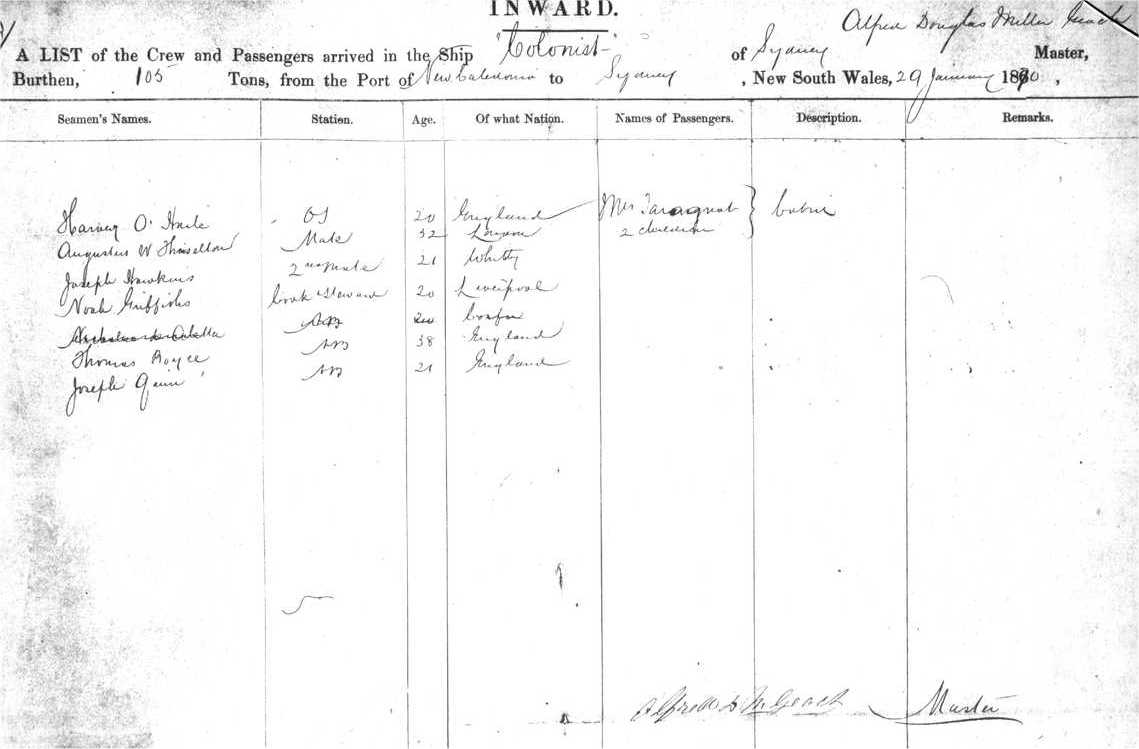 INWARD.
Alfred Douglas Miller Geach
A LIST of the Crew and Passengers arrived in the Ship "Colonist" of Sydney Master,
Burthen, 105 Tons, from the Port of New Caledonia to Sydney, New South Wales, 29 January 1870,
Seamen's Names. Station. Age. Of what Nation. Names of Passengers. Description. Remarks.
Harvey O' OS 20 England Mrs Cabin
Augustus W Thiselton Mate 32 London 2 children
Joseph Hawkins 2nd Mate 21 Whitby
Noah Griffiths Cook & Steward 20 Liverpool
AB 20 Corfu
Thomas Royce AB 38 England
Joseph Quin AB 21 England
Alfred D M Geach Master